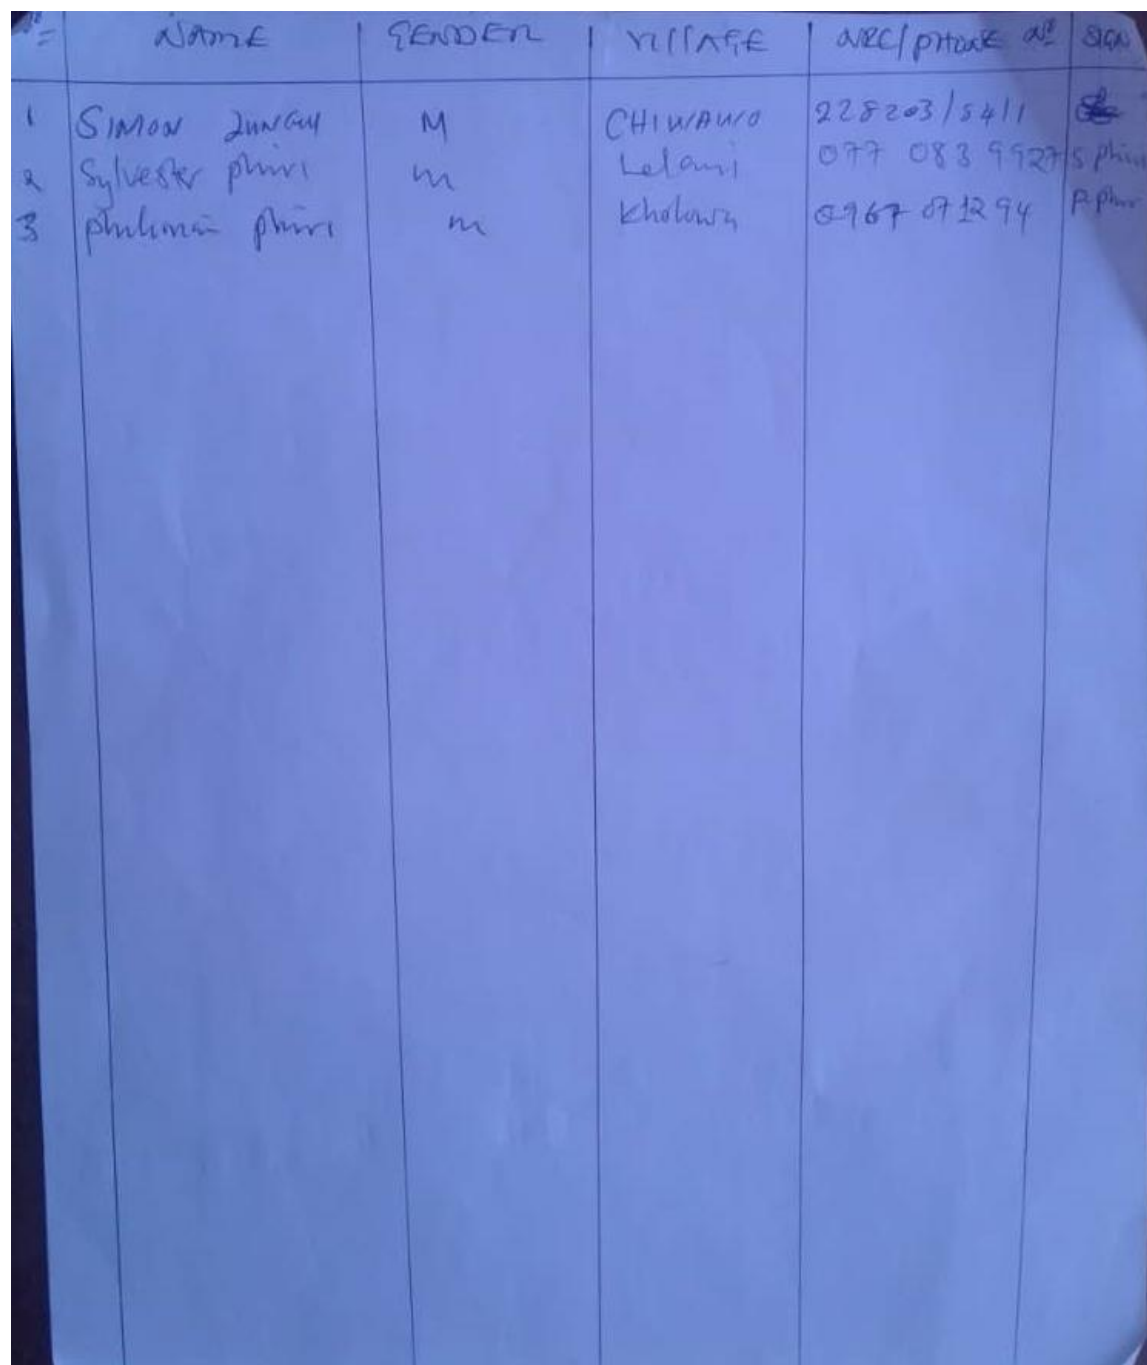 No NAME GENDER VILLAGE NRC/PHONE No SIGN
1 SIMON M CHIWAWO 228203/54/1
2 Sylvester phiri m Lelani 077 083 9927 S phiri
3 phiri m Kholowa 0967 071294 P. phiri